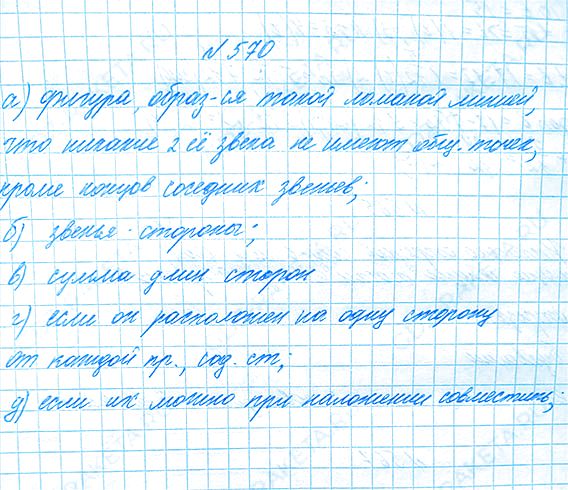 № 570
а) фигура, образ-ся такой ломаной линией,
что никакие 2 её звена не имеют общ. точек,
кроме концов соседних звеньев;
б) звенья - стороны;
в) сумма длин сторон
г) если он расположен на одну сторону
от каждой пр., сод. ст;
д) если их можно при наложении совместить;